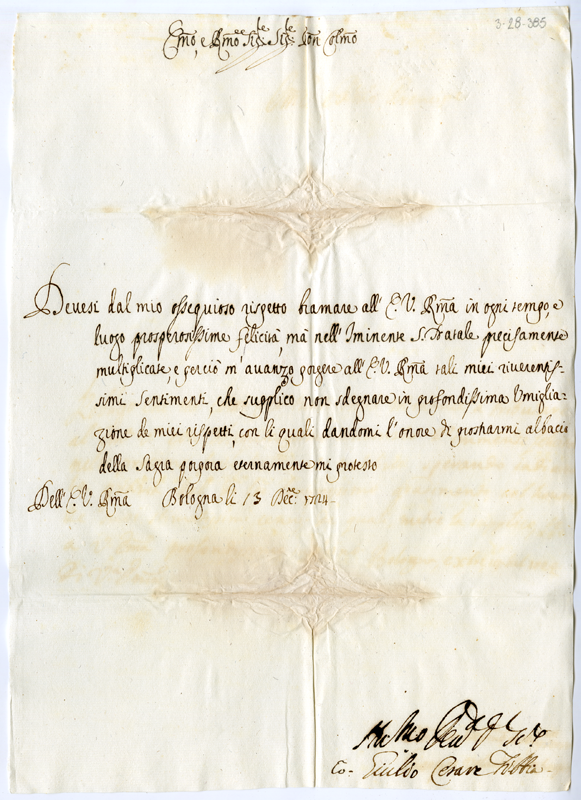 3-28-385
Emo, e Rmo Sig:re Sig:re Pron Colmo
Devesi dal mio ossequioso rispetto bramare all' E.V. Rma in ogni tempo, e
luogo prosperosissime felicità, mà nell' Iminente S. Natale precisamente
multiplicate, e perciò m'avanzo porgere all' E.V. Rma tali miei riverentis-
simi sentimenti, che supplico non sdegnare in profondissima Umiglia-
zione de miei rispetti, con li quali dandomi l'onore di prostrarmi al bacio
della Sagra porpora eternamente mi protesto
Dell' E.V. Rma Bologna li 13 Dĉe. 1724
Co. Giulio Cesare